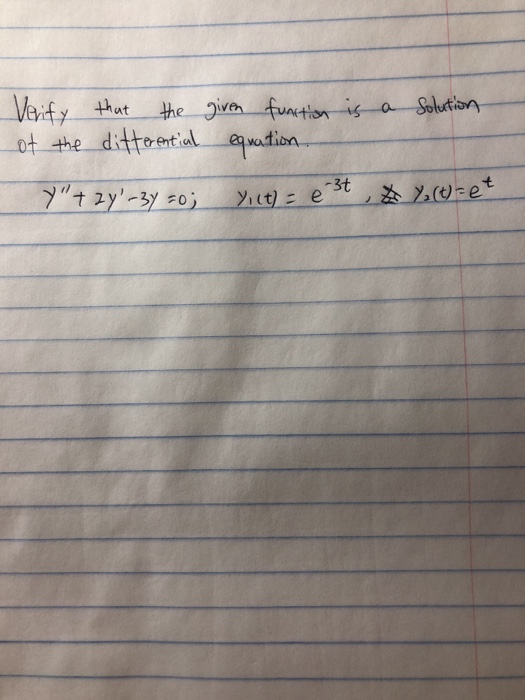 Verify that the given function is a solution
of the differential equation.
y"+ 2y'-3y =0; y₁(t) = e⁻³ᵗ, y₂(t)=eᵗ